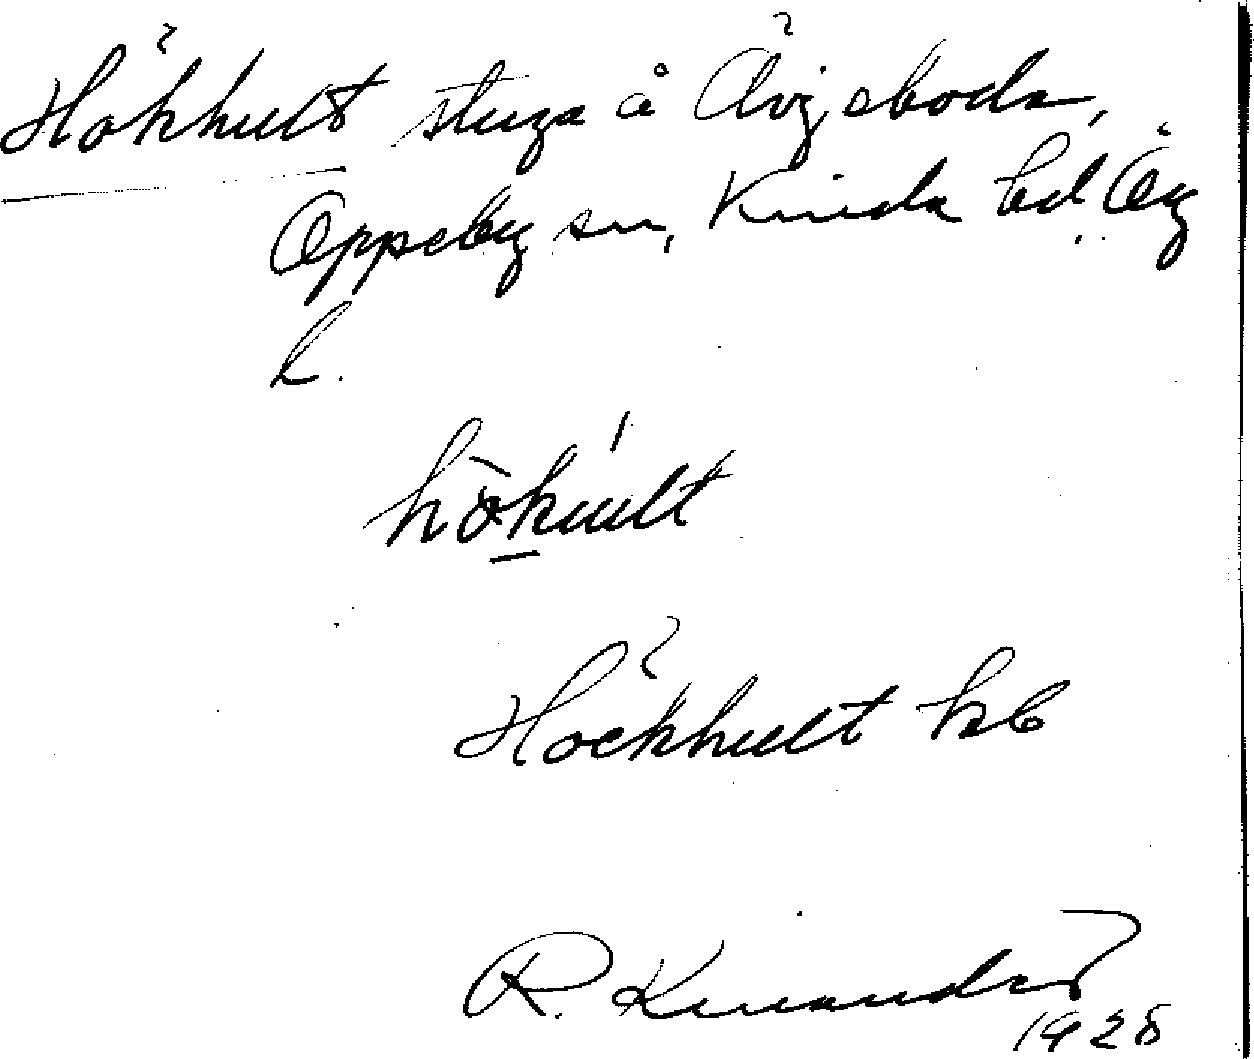 Hökhult stuga å Ävjeboda,
Oppeby sn, Kinda hd Ög
l.
hökult
Höckhult
R. Kinander
1928